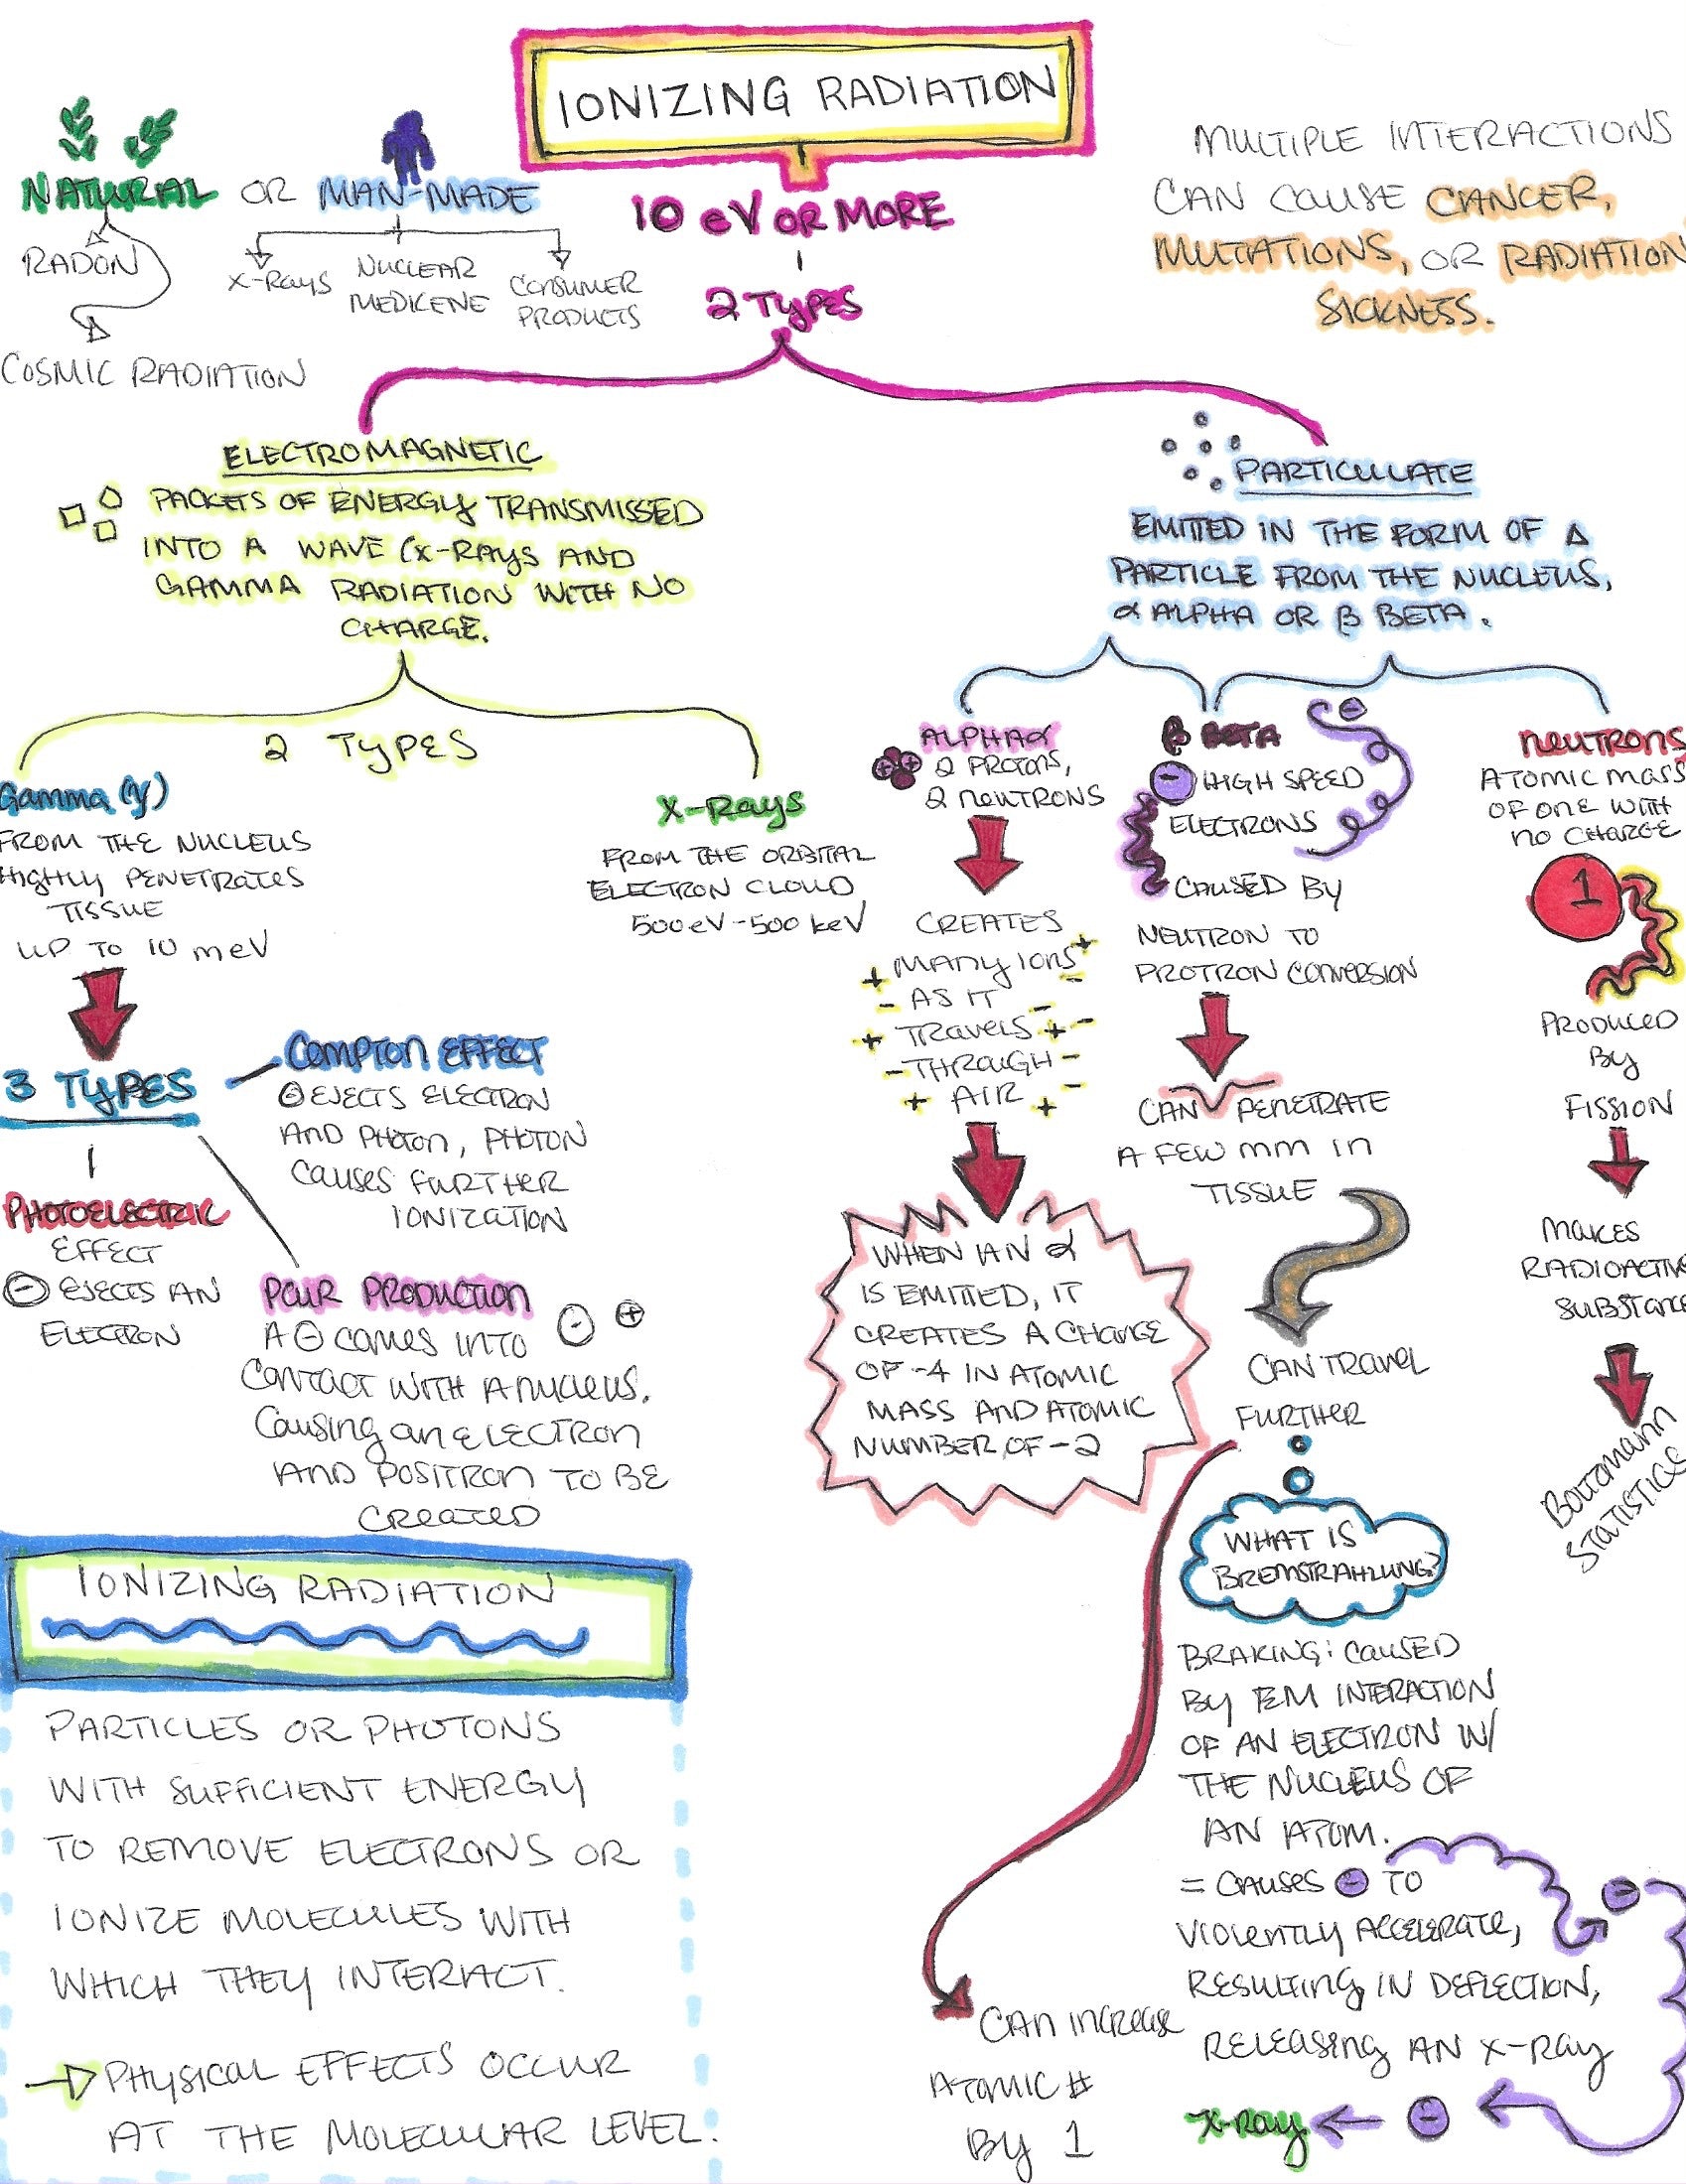 IONIZING RADIATION
NATURAL OR MAN-MADE
RADON
COSMIC RADIATION
X-RAYS
NUCLEAR
MEDICENE
CONSUMER
PRODUCTS
10 eV OR MORE
2 TYPES
MULTIPLE INTERACTIONS
CAN CAUSE CANCER,
MUTATIONS, OR RADIATION
SICKNESS.
ELECTROMAGNETIC
PACKETS OF ENERGY TRANSMISSED
INTO A WAVE (X-RAYS AND
GAMMA RADIATION WITH NO
CHARGE.
2 TYPES
Gamma (γ)
FROM THE NUCLEUS
HIGHLY PENETRATES
TISSUE
UP TO 10 meV
3 TYPES
COMPTON EFFECT
⊖ EJECTS ELECTRON
AND PHOTON, PHOTON
CAUSES FURTHER
IONIZATION
PHOTOELECTRIC
EFFECT
⊖ EJECTS AN
ELECTRON
PAIR PRODUCTION
⊖ ⊕
A ⊖ COMES INTO
CONTACT WITH A NUCLEUS.
CAUSING AN ELECTRON
AND POSITRON TO BE
CREATED
X-RAYS
FROM THE ORBITAL
ELECTRON CLOUD
500 eV - 500 keV
PARTICULATE
EMITTED IN THE FORM OF A
PARTICLE FROM THE NUCLEUS,
α ALPHA OR β BETA.
ALPHA α
2 PROTONS,
2 NEUTRONS
CREATES
MANY IONS
AS IT
TRAVELS
THROUGH
AIR
WHEN AN α
IS EMITTED, IT
CREATES A CHANGE
OF -4 IN ATOMIC
MASS AND ATOMIC
NUMBER OF -2
β BETA
HIGH SPEED
ELECTRONS
CAUSED BY
NEUTRON TO
PROTRON CONVERSION
CAN PENETRATE
A FEW MM IN
TISSUE
CAN TRAVEL
FURTHER
CAN INCREASE
ATOMIC #
BY 1
WHAT IS
BREMSTRAHLUNG?
BRAKING: CAUSED
BY EM INTERACTION
OF AN ELECTRON W/
THE NUCLEUS OF
AN ATOM.
= CAUSES ⊖ TO
VIOLENTLY ACCELERATE,
RESULTING IN DEFLECTION,
RELEASING AN X-RAY
X-RAY
NEUTRONS
ATOMIC MASS
OF ONE WITH
NO CHARGE
1
PRODUCED
BY
FISSION
MAKES
RADIOACTIVE
SUBSTANCE
BOLTZMANN
STATISTICS
IONIZING RADIATION
PARTICLES OR PHOTONS
WITH SUFFICIENT ENERGY
TO REMOVE ELECTRONS OR
IONIZE MOLECULES WITH
WHICH THEY INTERACT.
PHYSICAL EFFECTS OCCUR
AT THE MOLECULAR LEVEL.